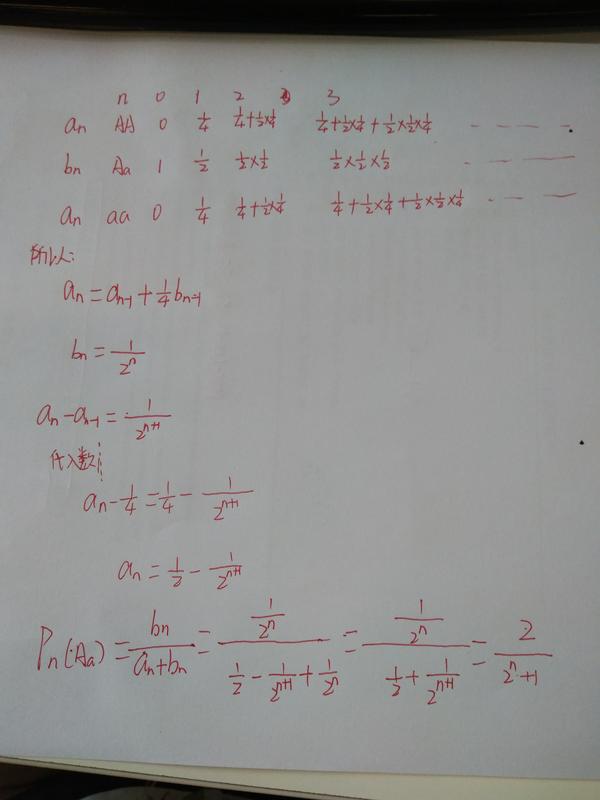 n 0 1 2 3
an AA 0 1/4 1/4+1/2×1/4 1/4+1/2×1/4+1/2×1/2×1/4 ----
bn Aa 1 1/2 1/2×1/2 1/2×1/2×1/2 ---
an aa 0 1/4 1/4+1/2×1/4 1/4+1/2×1/4+1/2×1/2×1/4 ---
所以:
an=an-1+1/4bn-1
bn=1/2^n
an-an-1=1/2^(n+1)
代入数
an-1/4=1/4-1/2^(n+1)
an=1/2-1/2^(n+1)
Pn(Aa)=bn/(an+bn)=(1/2^n)/(1/2-1/2^(n+1)+1/2^n)=(1/2^n)/(1/2+1/2^(n+1))=2/(2^n+1)